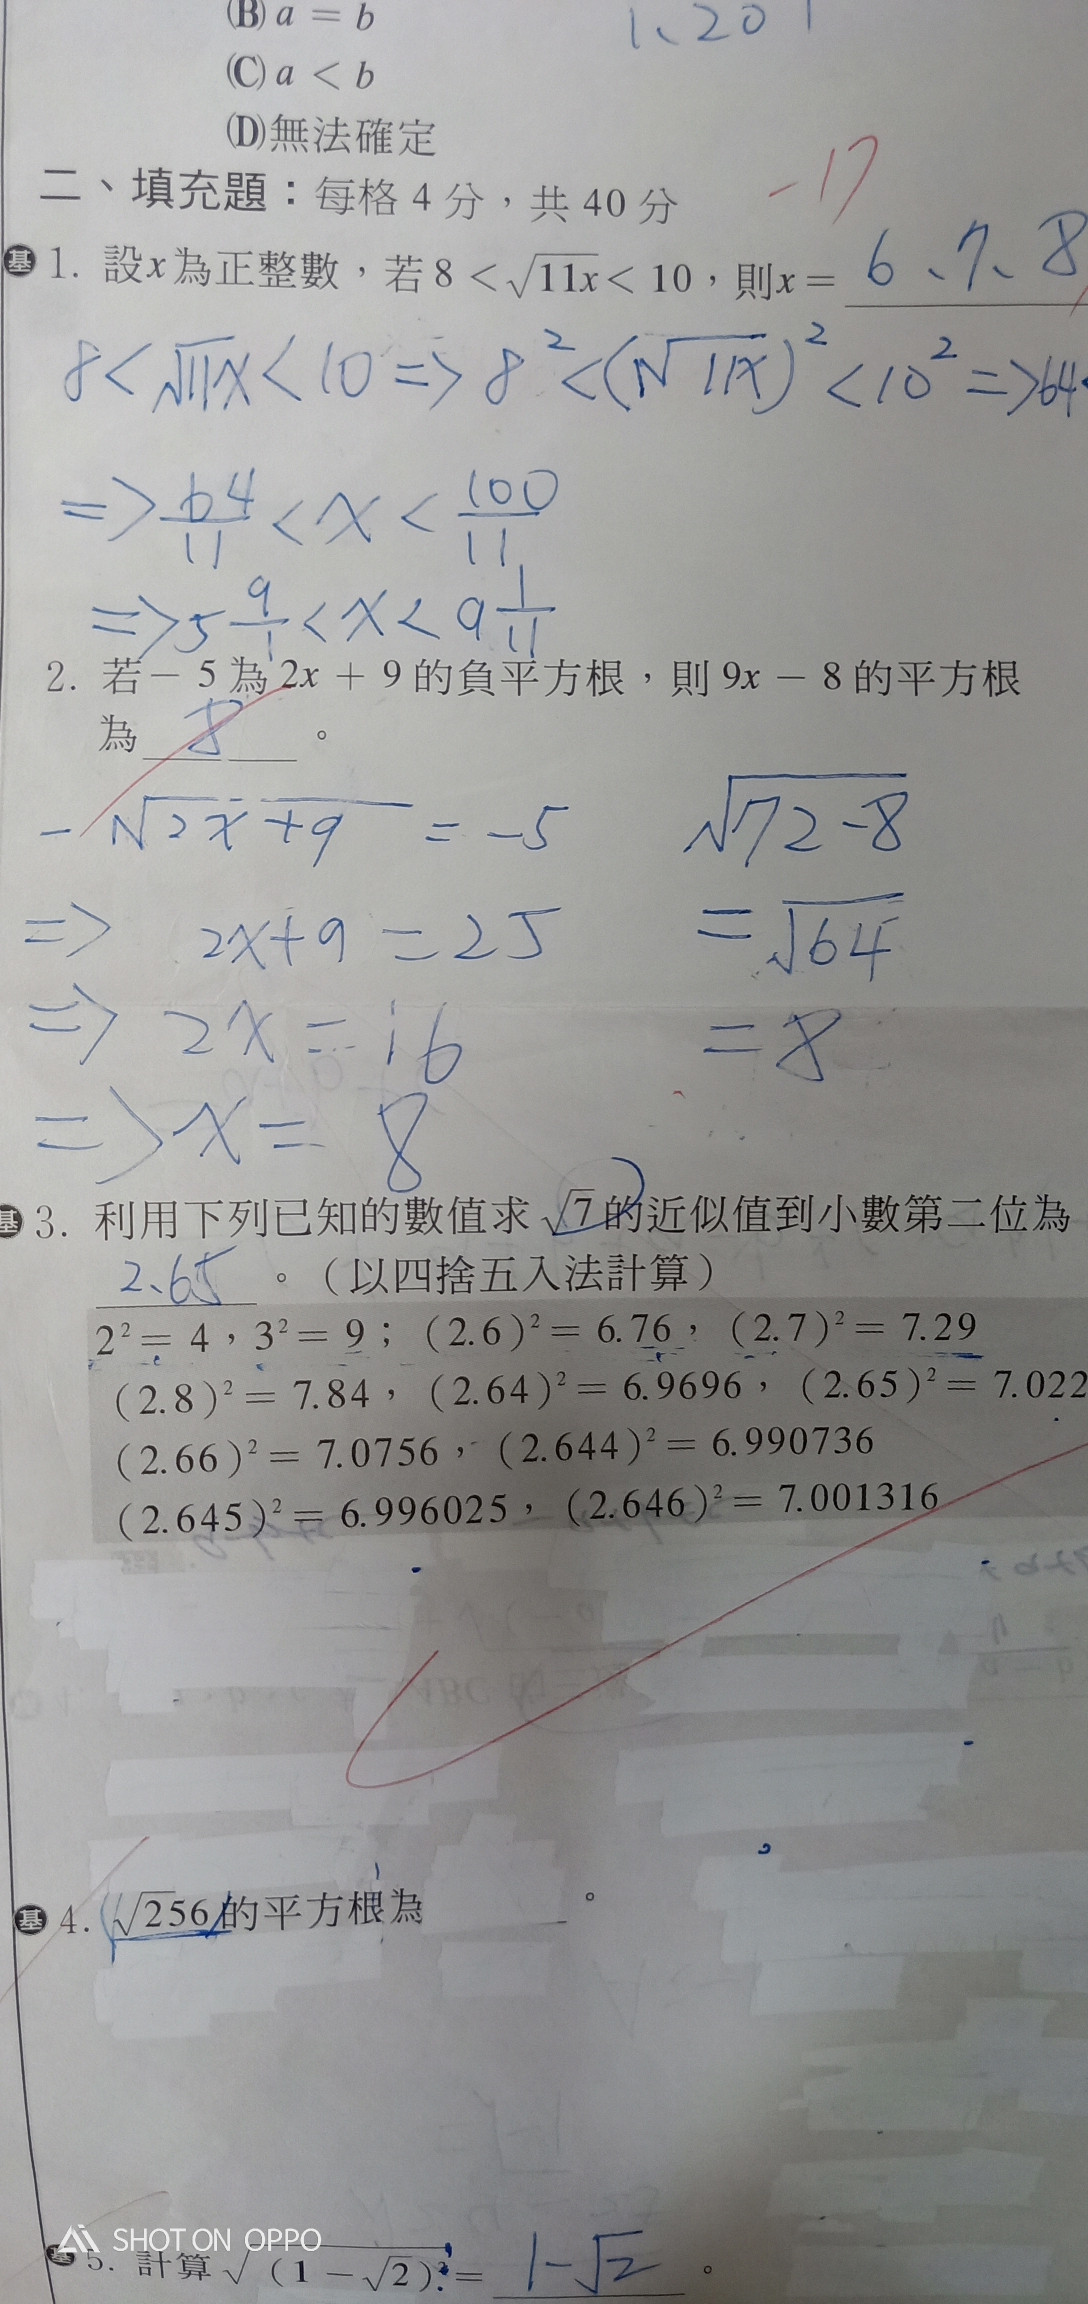 (B) a = b
1、20
(C) a < b
(D)無法確定
二、填充題：每格 4 分，共 40 分
-17
基 1. 設x為正整數，若 8 < √11x < 10，則x = 6、7、8
8 < √11x < 10 => 8² < (√11x)² < 10² => 64 <
=> 64/11 < x < 100/11
=> 5 9/1 < x < 9 1/11
2. 若 - 5 為 2x + 9 的負平方根，則 9x - 8 的平方根
為 8 。
-√2x+9 = -5 √72-8
=> 2x+9 = 25 = √64
=> 2x = 16 = 8
=> x = 8
基 3. 利用下列已知的數值求 √7 的近似值到小數第二位為
2.65 。（以四捨五入法計算）
2² = 4，3² = 9；(2.6)² = 6.76，(2.7)² = 7.29
(2.8)² = 7.84，(2.64)² = 6.9696，(2.65)² = 7.022
(2.66)² = 7.0756，(2.644)² = 6.990736
(2.645)² = 6.996025，(2.646)² = 7.001316
基 4. √256 的平方根為 。
SHOT ON OPPO
基 5. 計算 √(1 - √2)² = 1-√2 。